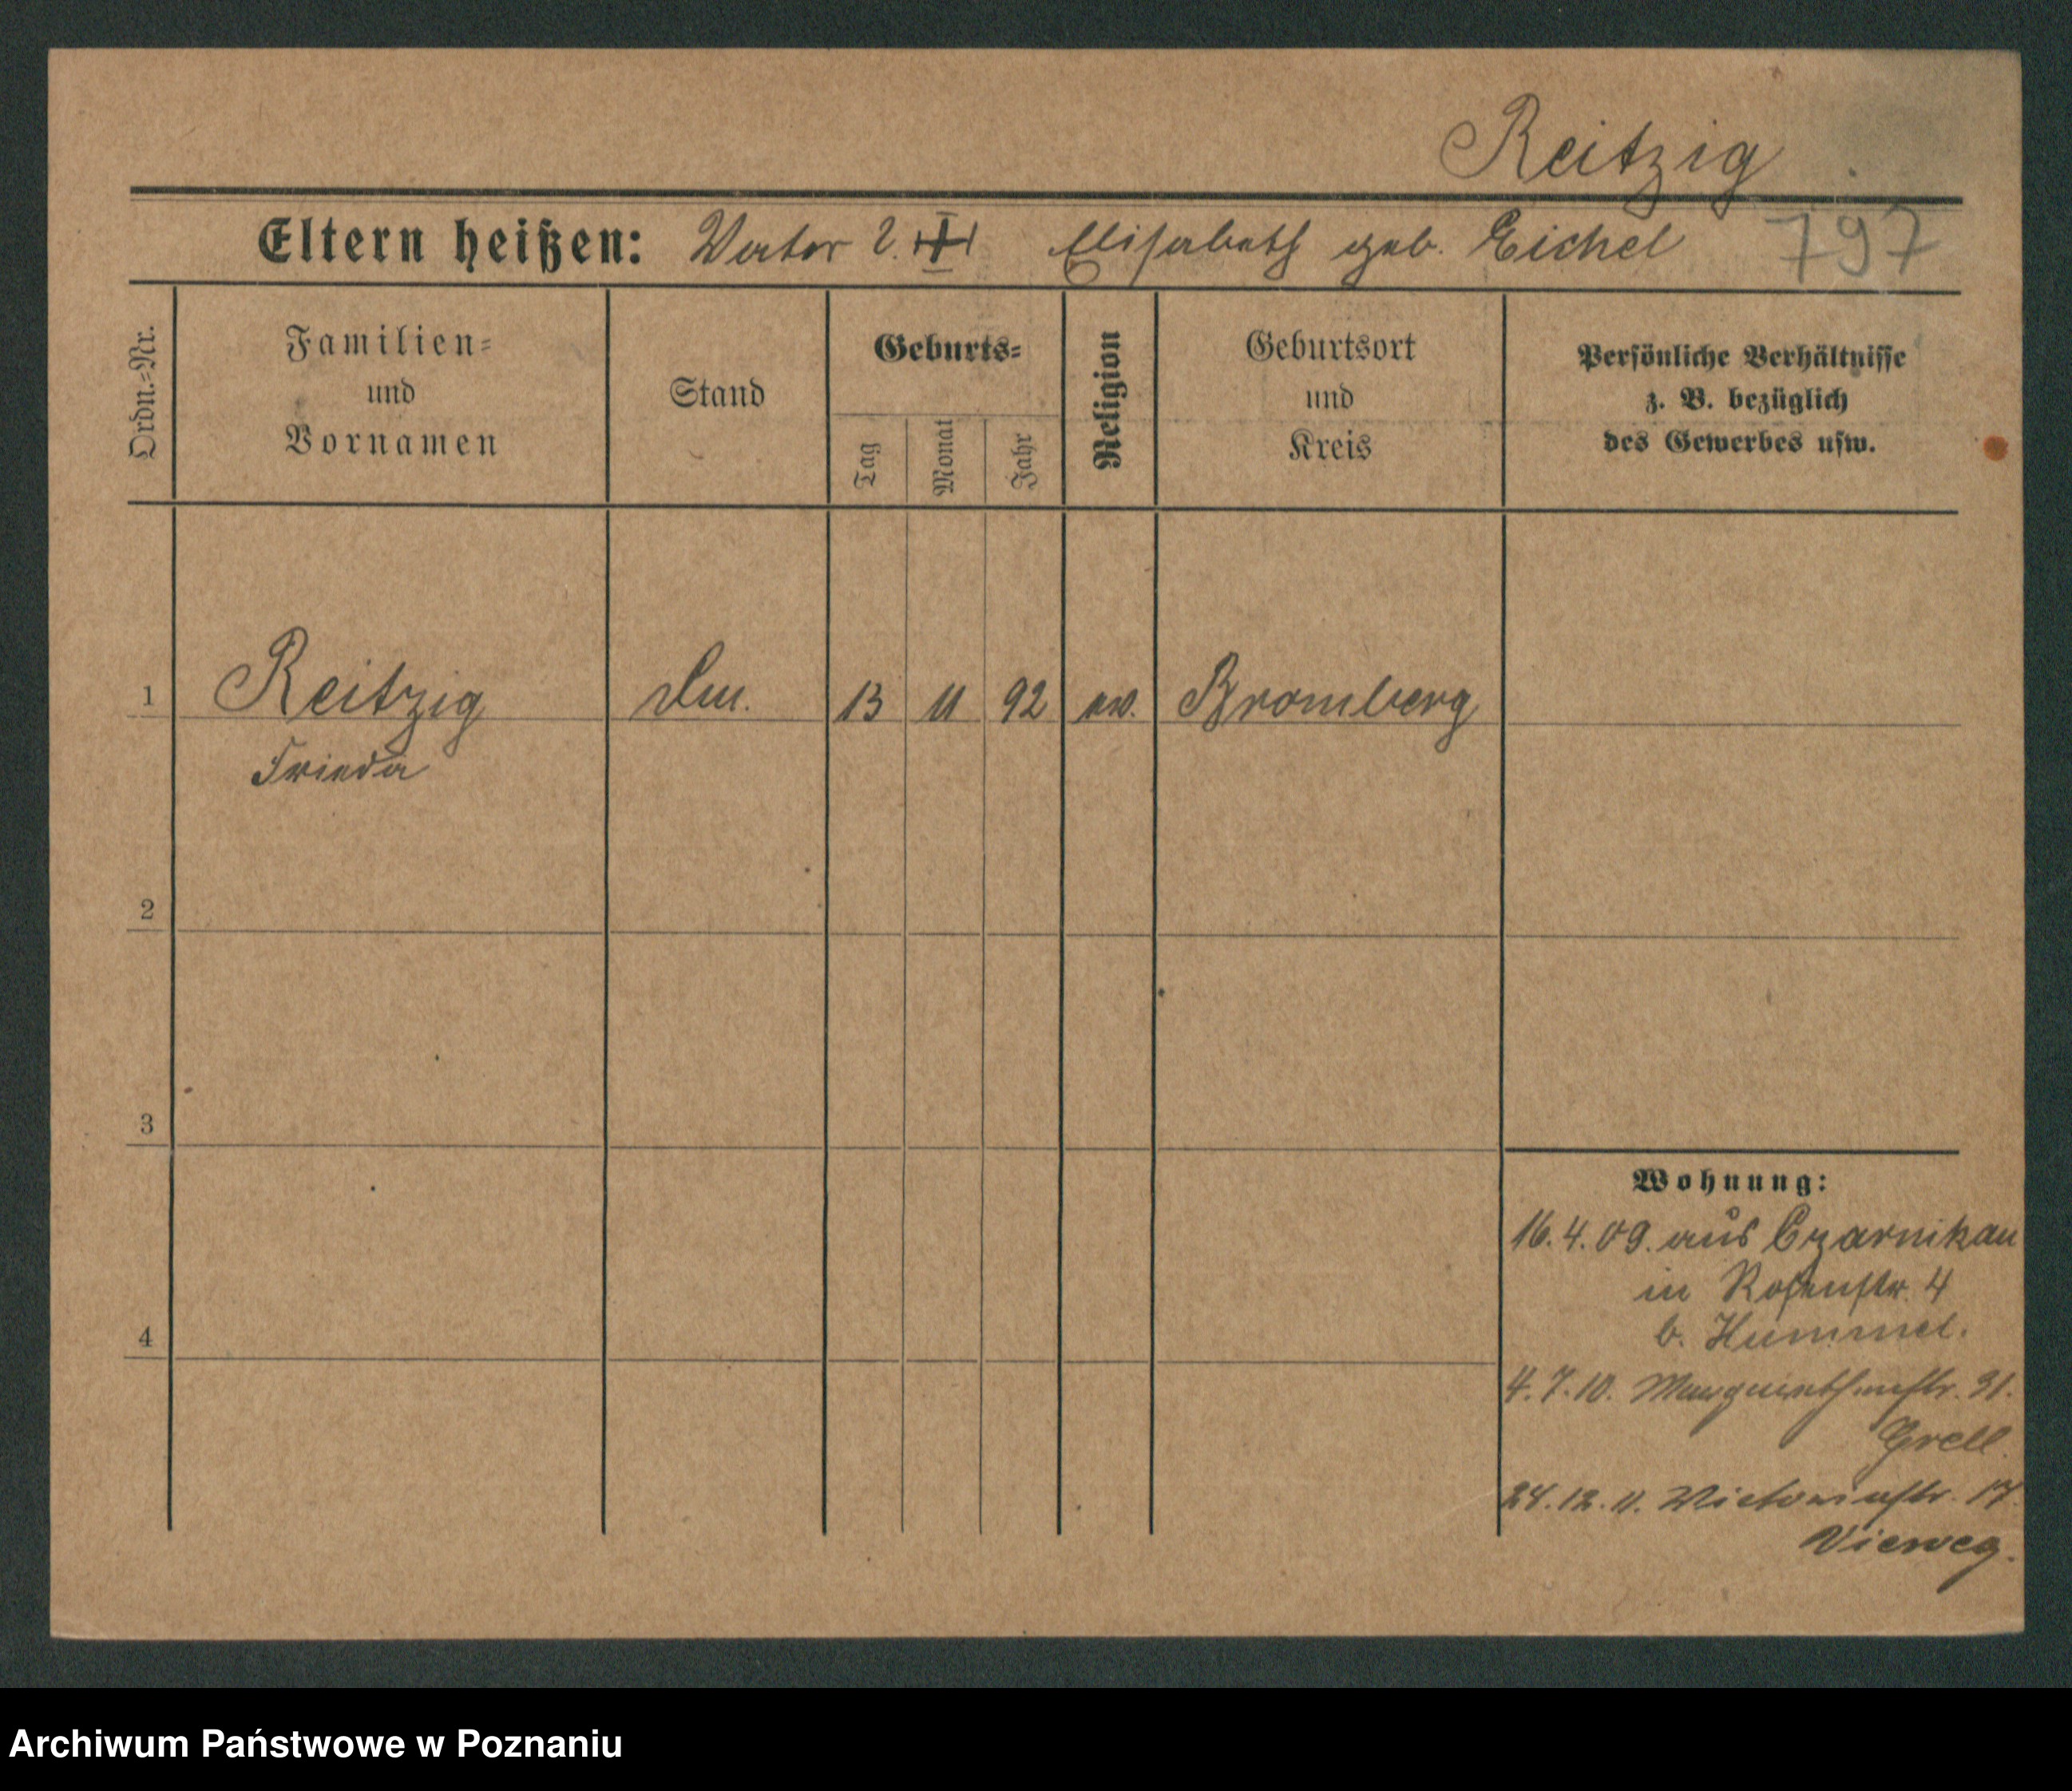 Reitzig
Eltern heißen: Vater ? Elisabeth geb. Eichel 797
Ordn.=Nr.
Familien=
und
Vornamen
Stand
Geburts=
Tag
Monat
Jahr
Religion
Geburtsort
und
Kreis
Persönliche Verhältnisse
z. B. bezüglich
des Gewerbes usw.
1 Reitzig 13 11 92 ev. Bromberg
Frieda
2
3
4
Wohnung:
16. 4. 09. aus Czarnikau
in Rosenstr. 4
b. Hummel.
4. 7. 10. Margarethenstr. 31.
Grell.
24. 12. 11. Victoriastr. 17.
Vieweg.
Archiwum Państwowe w Poznaniu